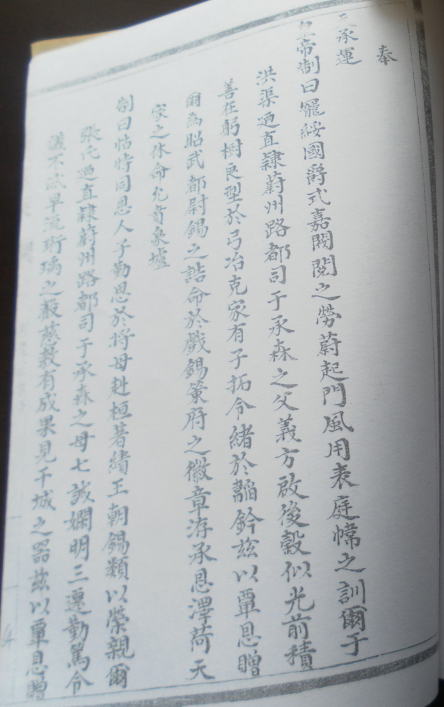 奉
天承運
皇帝制曰寵綏國爵式嘉閥閱之勞蔚起門風用表庭幃之訓爾于
洪渠迺直隸蔚州路都司于承森之父義方啟後穀似光前積
善在躬樹良型於弓冶克家有子拓令緒於韜鈐茲以覃恩贈
爾為昭武都尉錫之誥命於戲錫策府之徽章洊承恩澤荷天
家之休命允賁泉壚
制曰怙恃同恩人子勤思於將母赳桓著績王朝錫類以榮親爾
張氏迺直隸蔚州路都司于承森之母七誡嫻明三遷勤篤令
儀不忒早流珩瑀之聲慈教有成果見干城之器茲以覃恩贈